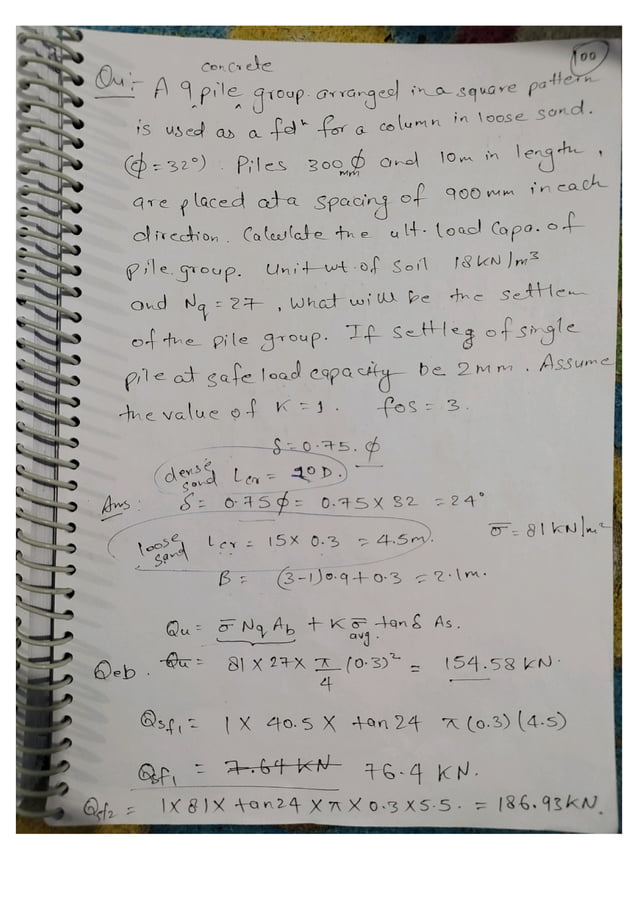 100
concrete
Qu:- A 9 pile group arranged in a square pattern
is used as a fdn for a column in loose sand.
(ϕ = 32°). Piles 300 ϕ and 10m in length,
mm
are placed at a spacing of 900 mm in each
direction. Calculate the ult. load capa. of
pile group. Unit wt. of soil 18 KN/m³
and Nq = 27, What will be the settlem
of the pile group. If settleg of single
pile at safe load capacity be 2mm. Assume
the value of K = 1. fos = 3.
δ = 0.75. ϕ
dense sand Lcr = 20D.
Ans: δ = 0.75ϕ = 0.75 X 32 = 24°
loose sand Lcr = 15 X 0.3 = 4.5m. σ̅ = 81 KN/m²
B = (3-1)0.9 + 0.3 = 2.1m.
Qu = σ̅ Nq Ab + K σ̅ avg. tan δ As.
Qeb. Qu = 81 X 27 X π/4 (0.3)² = 154.58 KN.
Qsf₁ = 1 X 40.5 X tan 24 π (0.3) (4.5)
Qsf₁ = 7.64 KN 76.4 KN.
Qsf2 = 1 X 81 X tan24 X π X 0.3 X 5.5. = 186.93 KN.